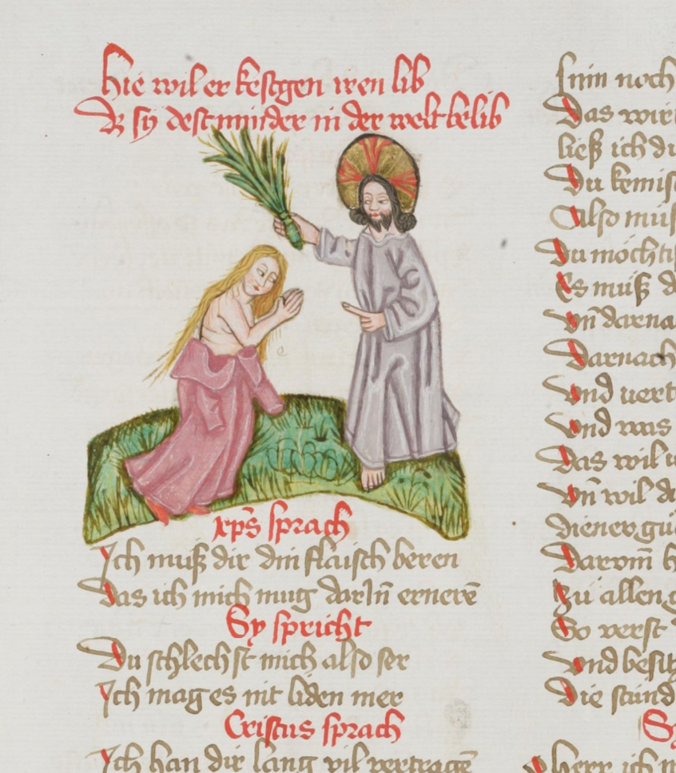 Hie wil er kestgen iren lib
Dz sy dest minder in der welt belib
xp̄s sprach
Ich muß dir din flaisch beren
Das ich mich mug dar Jn̄ ernerē
Sy spricht
Du schlechst mich also ser
Ich mag es nit liden mer
Cristus sprach
Ich han dir lang vil vertragē
sinn noch
Das wir
ließ ich di
Du kemis
Also mus
du möchti
Es muß d
vn̄ darna
Darnach
vnd vert
vnd was
Das wil i
vn̄ wil d
diener gu
Darom̄ h
Zu allen g
So verst
vnd besitz
Die stund
Sy
herr ich m